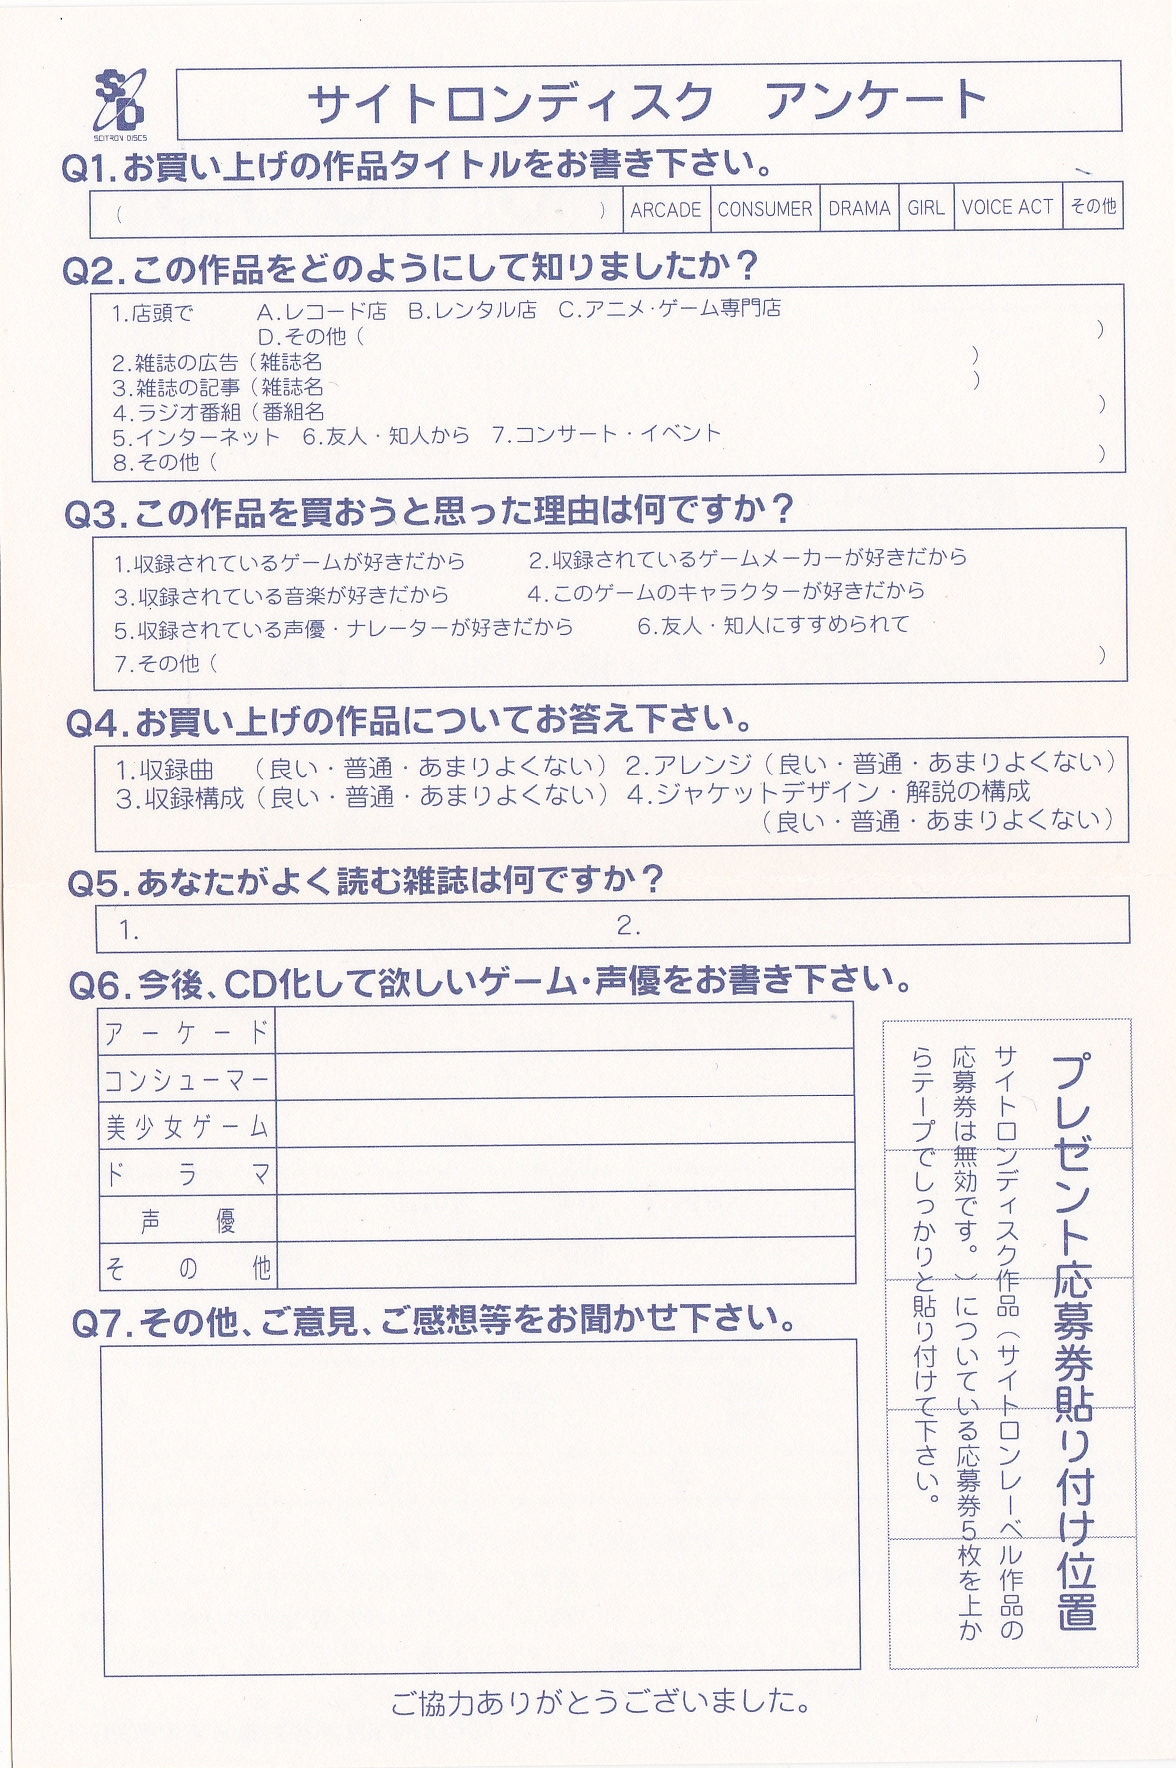 SCITRON DISCS
サイトロンディスク　アンケート
Q1.お買い上げの作品タイトルをお書き下さい。
（　　　） ARCADE CONSUMER DRAMA GIRL VOICE ACT その他
Q2.この作品をどのようにして知りましたか？
1.店頭で　A.レコード店　B.レンタル店　C.アニメ・ゲーム専門店
D.その他（　　　）
2.雑誌の広告（雑誌名　　　）
3.雑誌の記事（雑誌名　　　）
4.ラジオ番組（番組名　　　）
5.インターネット　6.友人・知人から　7.コンサート・イベント
8.その他（　　　）
Q3.この作品を買おうと思った理由は何ですか？
1.収録されているゲームが好きだから　2.収録されているゲームメーカーが好きだから
3.収録されている音楽が好きだから　4.このゲームのキャラクターが好きだから
5.収録されている声優・ナレーターが好きだから　6.友人・知人にすすめられて
7.その他（　　　）
Q4.お買い上げの作品についてお答え下さい。
1.収録曲　（良い・普通・あまりよくない）2.アレンジ（良い・普通・あまりよくない）
3.収録構成（良い・普通・あまりよくない）4.ジャケットデザイン・解説の構成
（良い・普通・あまりよくない）
Q5.あなたがよく読む雑誌は何ですか？
1.　　　2.
Q6.今後、CD化して欲しいゲーム・声優をお書き下さい。
アーケード
コンシューマー
美少女ゲーム
ドラマ
声優
その他
プレゼント応募券貼り付け位置
サイトロンディスク作品（サイトロンレーベル作品の
応募券は無効です。）についている応募券5枚を上か
らテープでしっかりと貼り付けて下さい。
Q7.その他、ご意見、ご感想等をお聞かせ下さい。
ご協力ありがとうございました。